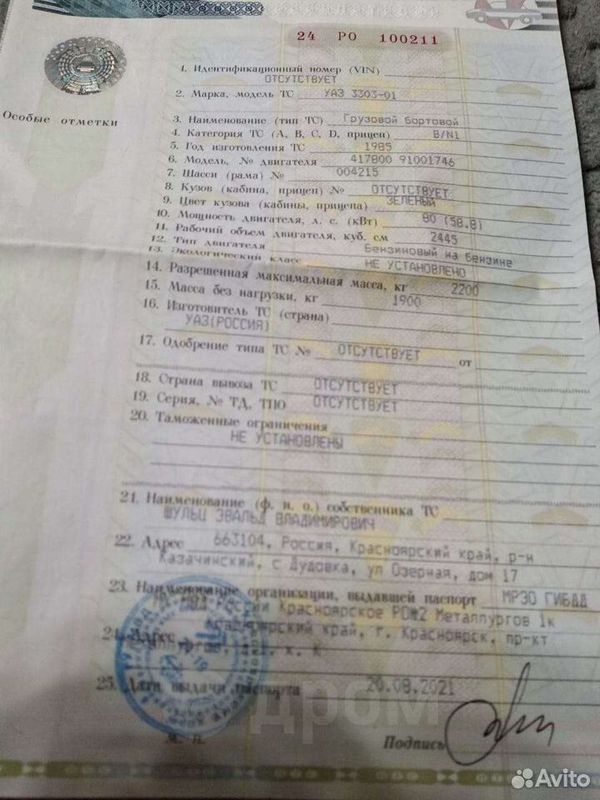 24 РО 100211
Особые отметки
1. Идентификационный номер (VIN)
ОТСУТСТВУЕТ
2. Марка, модель ТС УАЗ 3303-01
3. Наименование (тип ТС) Грузовой бортовой
4. Категория ТС (A, B, C, D, прицеп) B/N1
5. Год изготовления ТС 1985
6. Модель, № двигателя 417800 91001746
7. Шасси (рама) № 004215
8. Кузов (кабина, прицеп) № ОТСУТСТВУЕТ
9. Цвет кузова (кабины, прицепа) ЗЕЛЕНЫЙ
10. Мощность двигателя, л. с. (кВт) 80 (58.8)
11. Рабочий объем двигателя, куб. см 2445
12. Тип двигателя Бензиновый на бензине
13. Экологический класс НЕ УСТАНОВЛЕНО
14. Разрешенная максимальная масса, кг 2200
15. Масса без нагрузки, кг 1900
16. Изготовитель ТС (страна)
УАЗ(РОССИЯ)
17. Одобрение типа ТС № ОТСУТСТВУЕТ от
18. Страна вывоза ТС ОТСУТСТВУЕТ
19. Серия, № ТД, ТПО ОТСУТСТВУЕТ
20. Таможенные ограничения
НЕ УСТАНОВЛЕНЫ
21. Наименование (ф. и. о.) собственника ТС
ШУЛЬЦ ЭВАЛЬД ВЛАДИМИРОВИЧ
22. Адрес 663104, Россия, Красноярский край, р-н
Казачинский, с Дудовка, ул Озерная, дом 17
23. Наименование организации, выдавшей паспорт МРЭО ГИБДД
Красноярское РО№2 Металлургов 1к
24. Адрес край, г. Красноярск, пр-кт
25. Дата выдачи паспорта 20.08.2021
М. п.
Подпись
дром
Avito